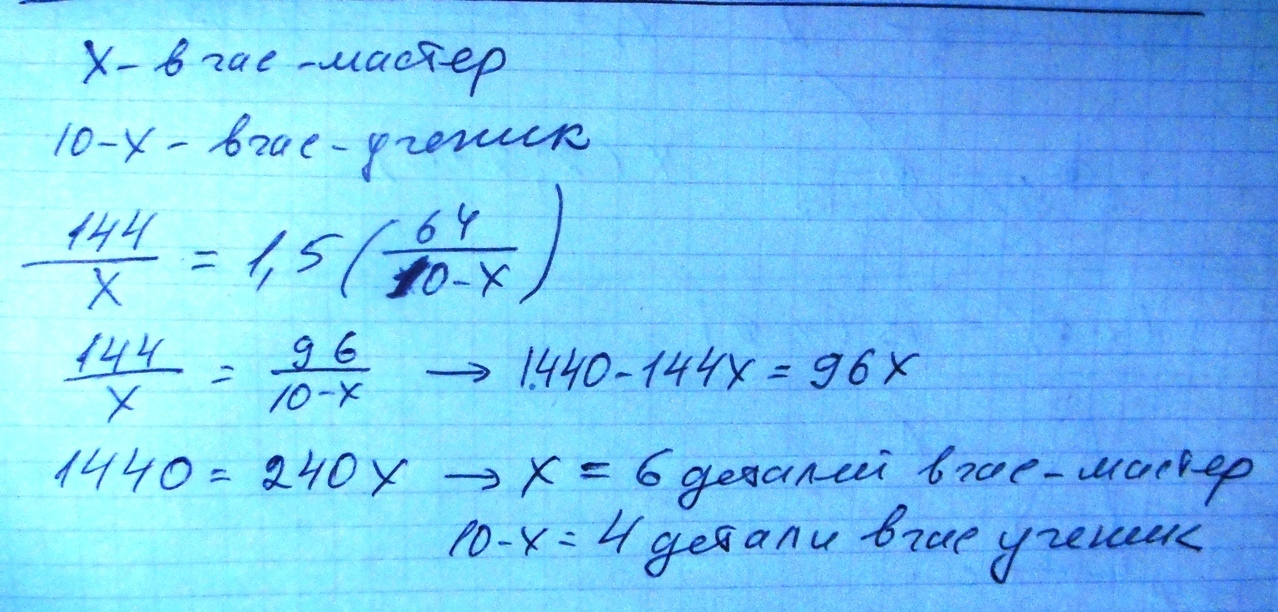 X - в час - мастер
10-X - в час - ученик
144/X = 1,5 (64/10-X)
144/X = 96/10-X → 1440-144X = 96X
1440 = 240X → X = 6 деталей в час - мастер
10-X = 4 детали в час ученик